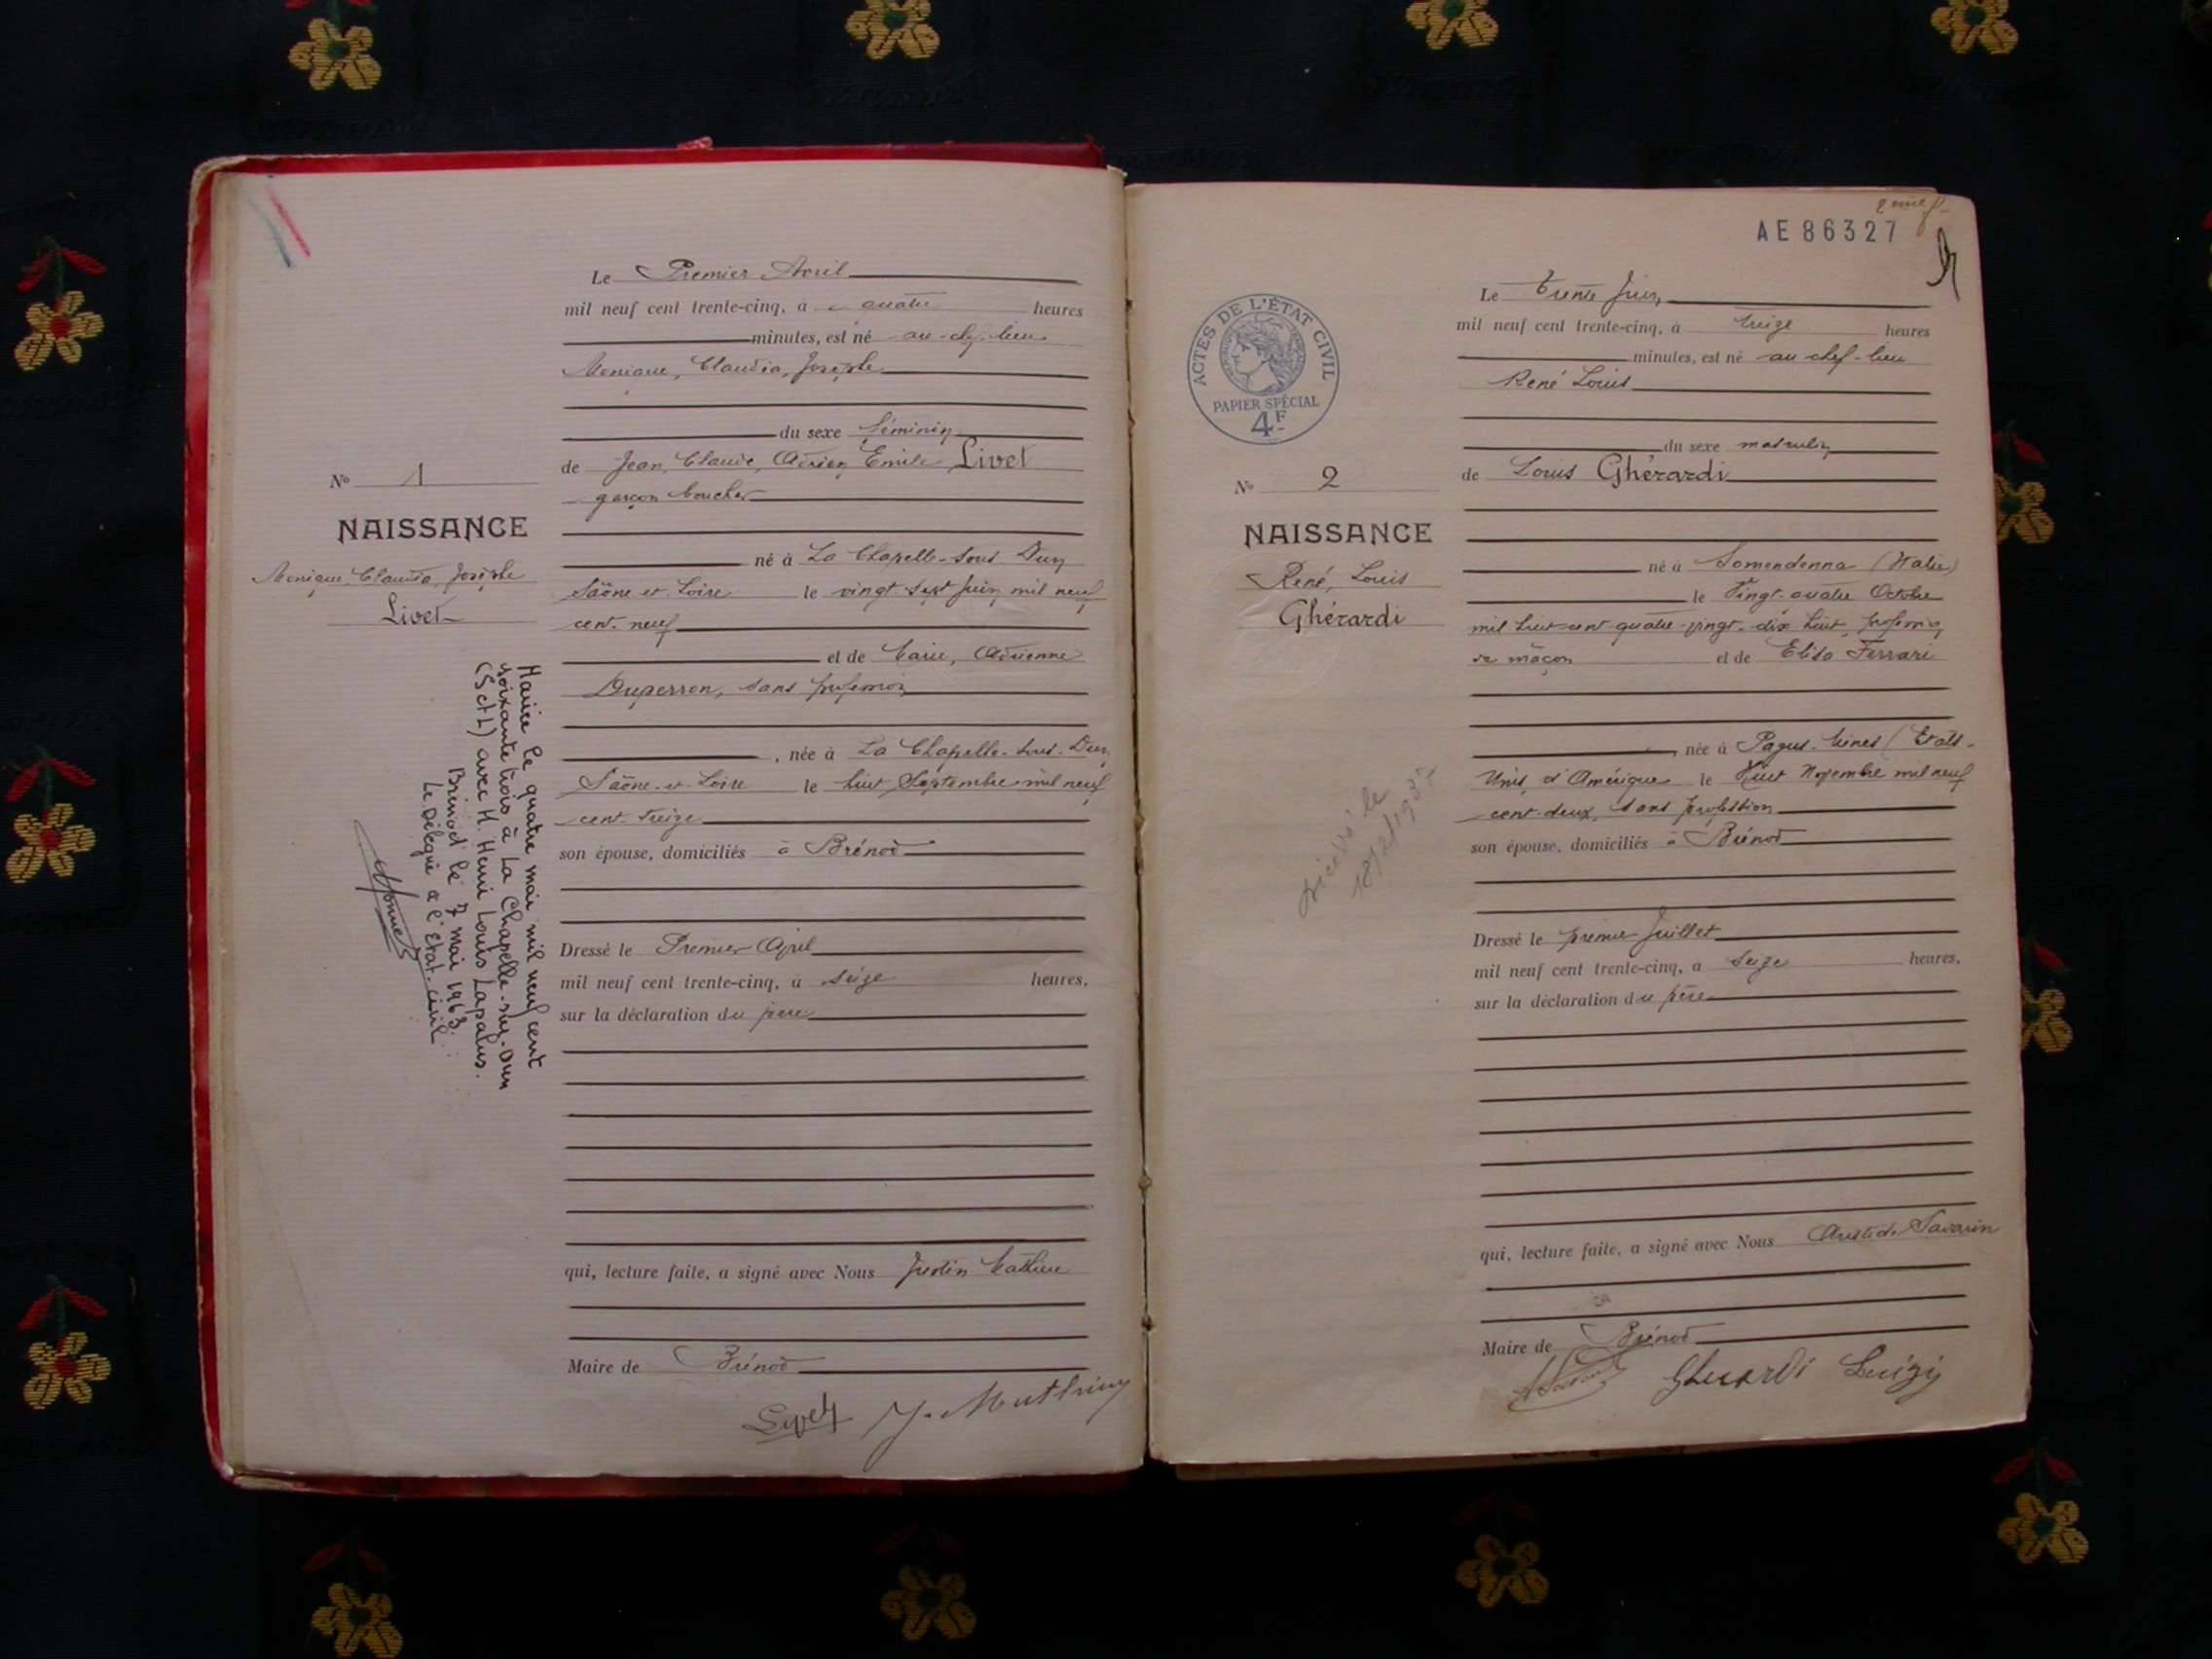 Le Premier Avril
mil neuf cent trente-cinq, à quatre heures
minutes, est né au chef-lieu
Monique, Claudia, Josèphe
du sexe féminin
de Jean, Claude, Adrien, Emile Livet
garçon boucher
né à La Chapelle-sous-Dun
Saône et Loire le vingt sept Juin mil neuf
cent neuf
et de Marie, Adrienne
Duperron, sans profession
, née à La Chapelle-sous-Dun
Saône-et-Loire le huit Septembre mil neuf
cent treize
son épouse, domiciliés à Brénod
Dressé le Premier Avril
mil neuf cent trente-cinq, à seize heures,
sur la déclaration du père
qui, lecture faite, a signé avec Nous Justin Mathieu
Maire de Brénod
Livet J. Mathieu
No 1
NAISSANCE
Monique, Claudia, Josèphe
Livet
Mariée le quatre mai mil neuf cent
soixante trois à La Chapelle-sur-Dun
(S et L) avec M. Henri Louis Lapalus.
Brénod le 7 mai 1963.
Le Délégué à l'Etat-civil
AE 86327
ACTES DE L'ÉTAT CIVIL
PAPIER SPÉCIAL
4F
Le trente Juin
mil neuf cent trente-cinq, à treize heures
minutes, est né au chef-lieu
René Louis
du sexe masculin
de Louis Ghérardi
né à Somendenna (Italie)
le Vingt-quatre Octobre
mil huit cent quatre-vingt-dix huit, profession
de maçon et de Elisa Ferrari
, née à Pagus-Mines (Etats-
Unis d'Amérique le Huit Novembre mil neuf
cent deux, sans profession
son épouse, domiciliés à Brénod
Dressé le premier Juillet
mil neuf cent trente-cinq, à seize heures,
sur la déclaration du père
qui, lecture faite, a signé avec Nous Aristide Savarin
Maire de Brénod
Gherardi Luigi
No 2
NAISSANCE
René, Louis
Ghérardi
décédé le